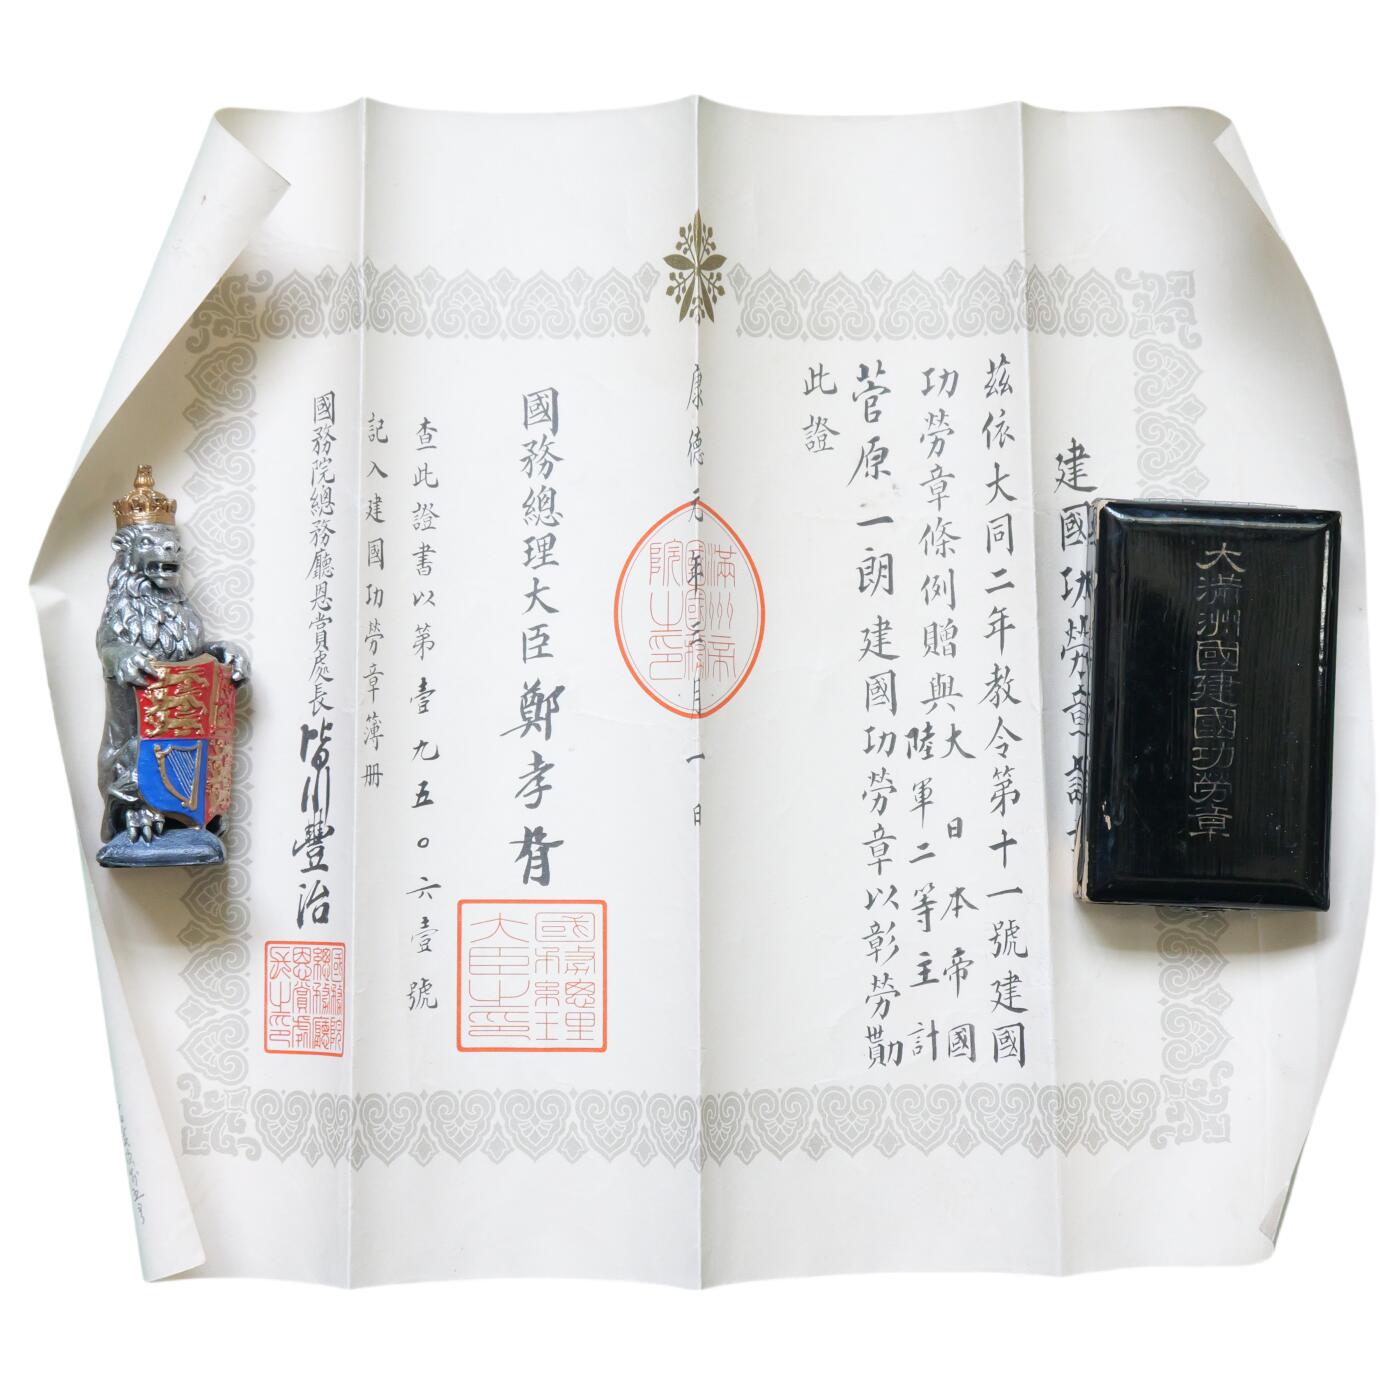 建國功勞章之證
茲依大同二年教令第十一號建國
功勞章條例贈與大日本帝國
陸軍二等主計
菅原一朗建國功勞章以彰勞勩
此證
康德元年三月一日
滿洲帝
國國務
院之印
國務總理大臣鄭孝胥
國務總理
大臣之印
查此證書以第壹九五〇六壹號
記入建國功勞章簿冊
國務院總務廳恩賞處長皆川豐治
國務院
總務廳
恩賞處
長之印
大滿洲國建國功勞章